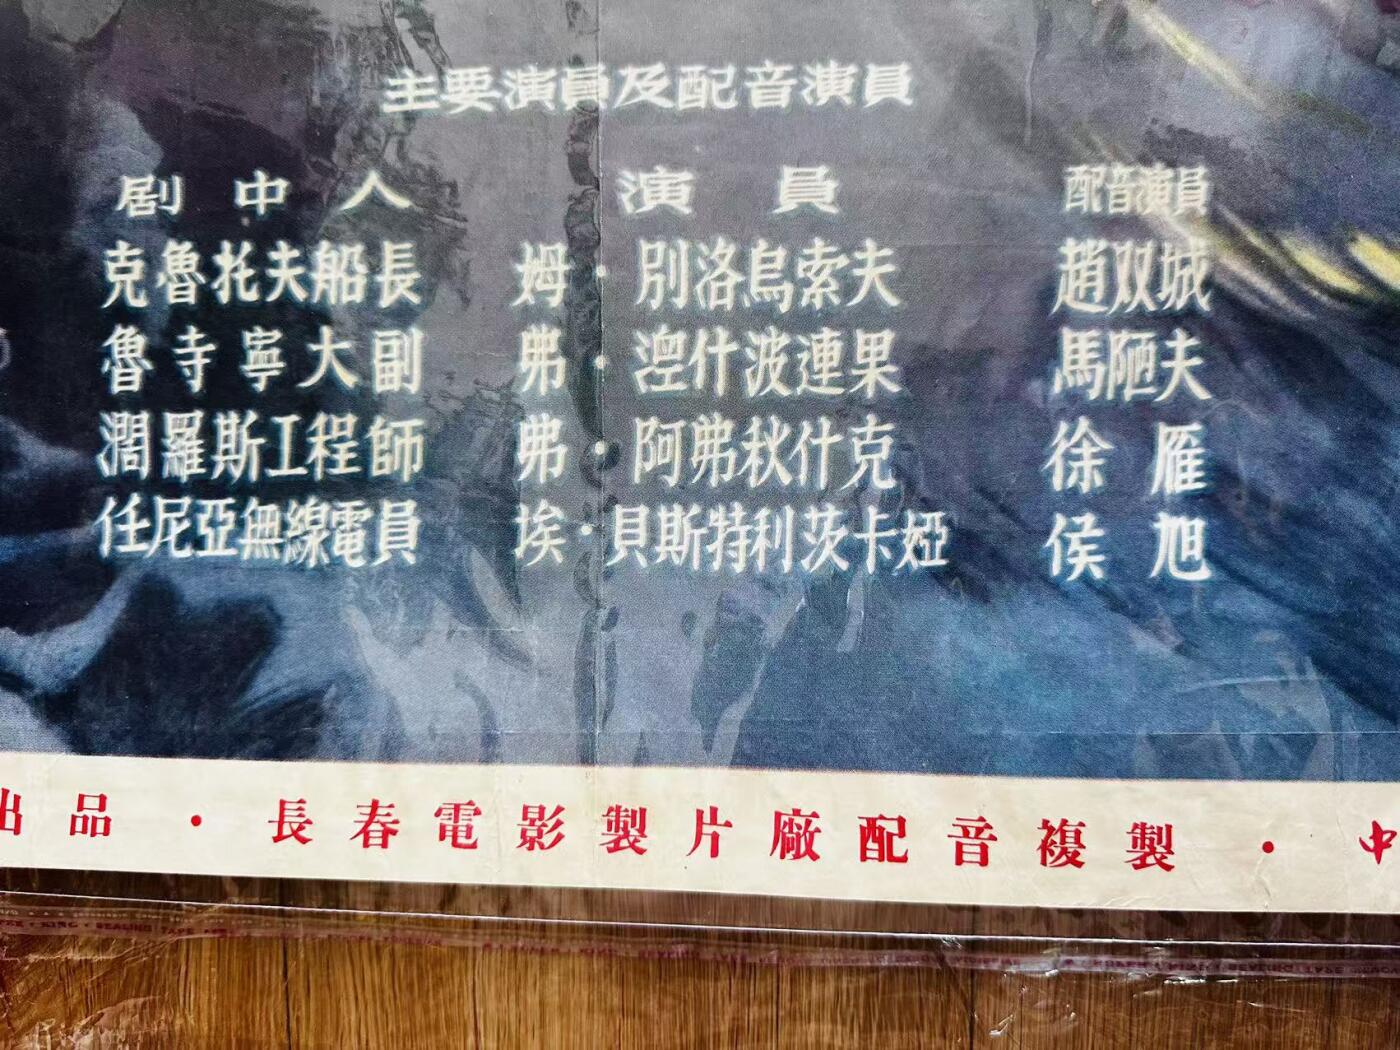 主要演員及配音演員
剧中人 演員 配音演員
克魯托夫船長 姆·別洛烏索夫 趙双城
魯寺寧大副 弗·湼什波連果 馬陋夫
濶羅斯工程師 弗·阿弗秋什克 徐雁
任尼亞無線電員 埃·貝斯特利茨卡婭 侯旭
出品·長春電影製片廠配音複製·中